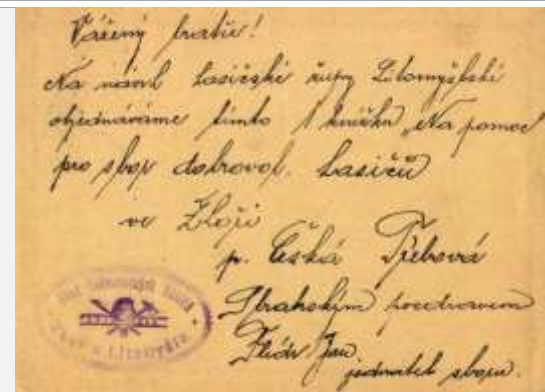 Vážený bratře!
Na návrh hasičské župy Litomyšlské
objednáváme tímto 1 knížku „Na pomoc
pro sbor dobrovol. hasičů
ve Zhoři
p. Česká Třebová
S bratrským pozdravem
Jan
jednatel sboru.